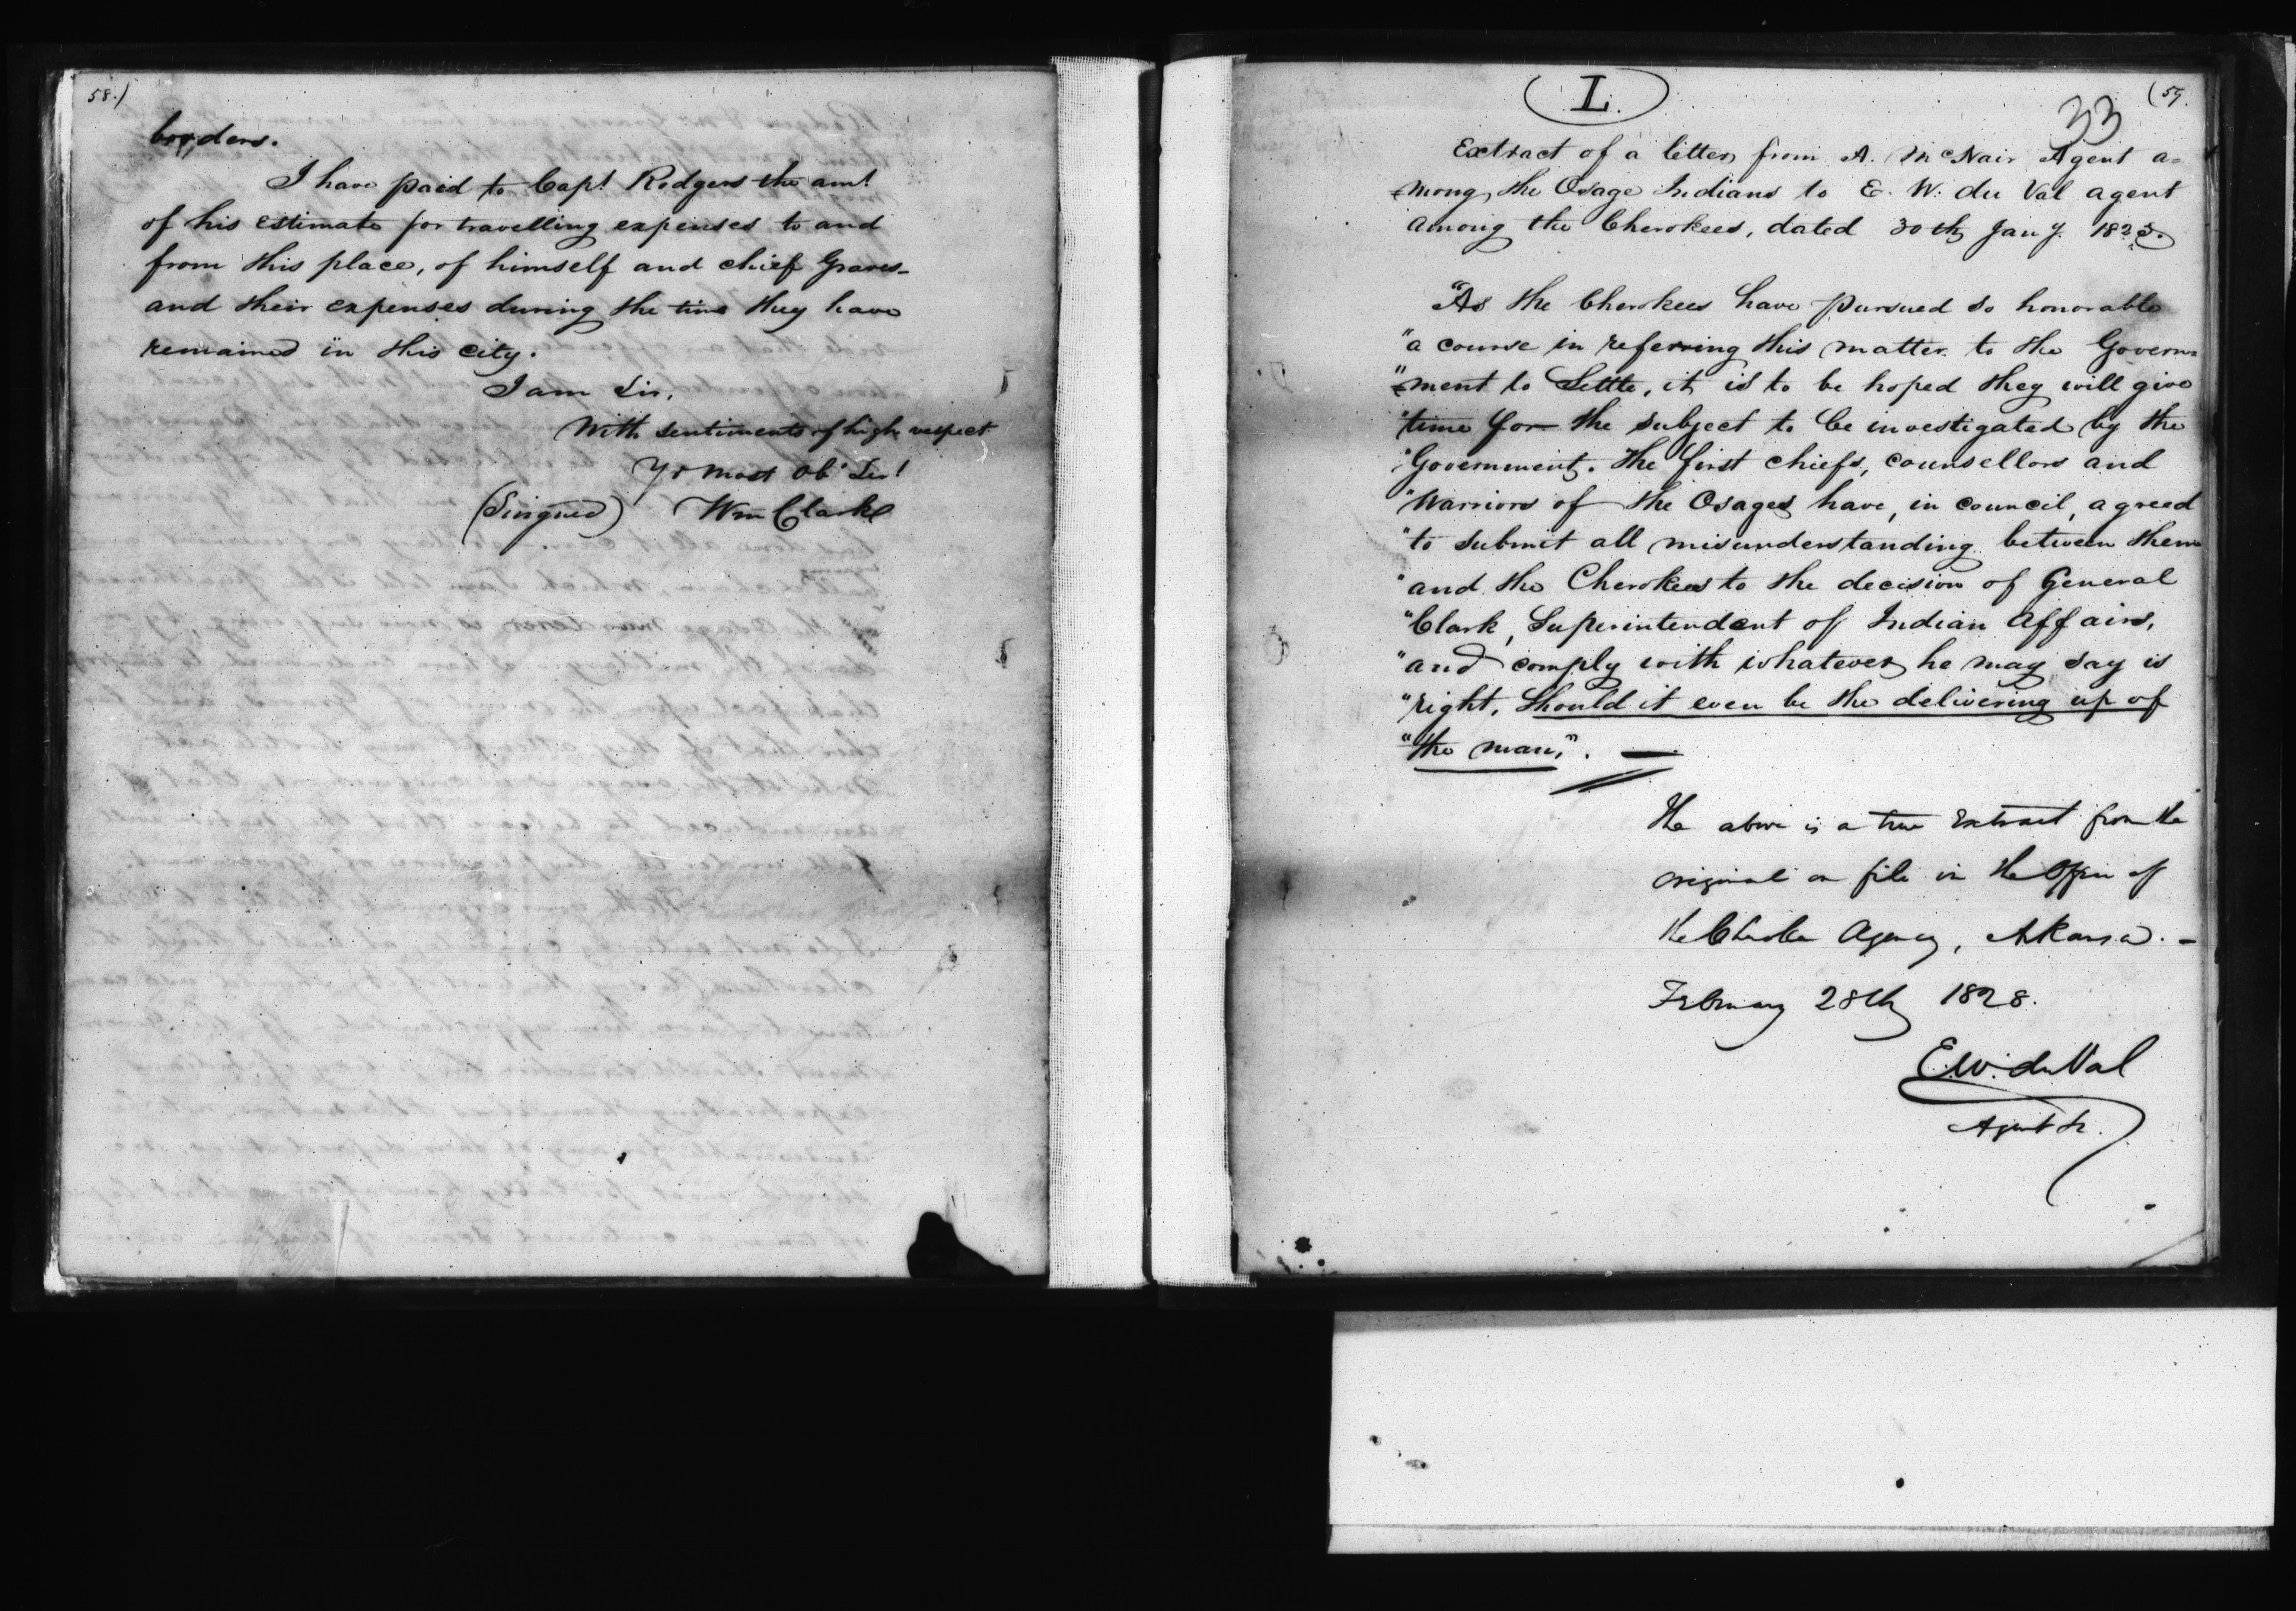 58.)
borders.
I have paid to Capt. Rodgers the amt.
of his estimate for travelling expenses to and
from this place, of himself and chief Graves-
and their expenses during the time they have
remained in this city.
I am Sir,
With sentiments of high respect
Yr most ob. Sert.
(Singned) Wm Clarke
L.
(59.
33
Extract of a letter from A. McNair Agent a=
=mong the Osage Indians to E. W. du Val agent
among the Cherokees, dated 30th Jany.
"As the Cherokees have pursued so honorable
"a course in referring this matter to the Govern=
"=ment to Settle, it is to be hoped they will give
"time for the subject to be investigated by the
"Government. The first chiefs, counsellors and
"Warriors of the Osages have, in council, agreed
"to submit all misunderstanding between them
"and the Cherokees to the decision of General
"Clark, Superintendent of Indian Affairs,
"and comply with whatever he may say is
"right, should it even be the delivering up of
"the man,".
The above is a true Extract from the
original on file in the Office of
the Cherokee Agency, Arkansa. -
February 28th 1828.
E. W. du Val
Agent &c.